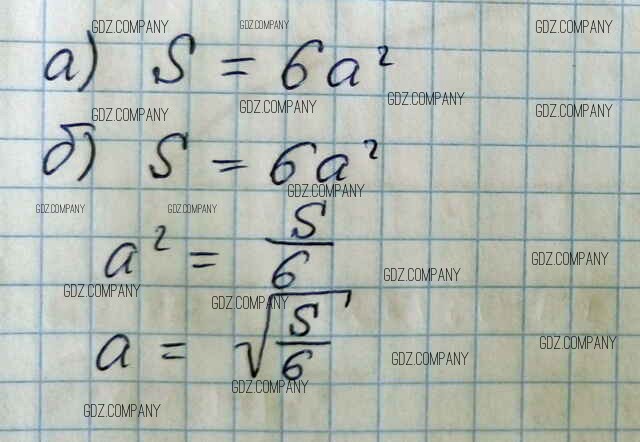 GDZ.COMPANY GDZ.COMPANY GDZ.COMPANY
а) S = 6a²
GDZ.COMPANY GDZ.COMPANY GDZ.COMPANY GDZ.COMPANY
б) S = 6a²
GDZ.COMPANY
GDZ.COMPANY GDZ.COMPANY
a² = S/6
GDZ.COMPANY GDZ.COMPANY
GDZ.COMPANY GDZ.COMPANY
a = √(S/6)
GDZ.COMPANY GDZ.COMPANY
GDZ.COMPANY
GDZ.COMPANY